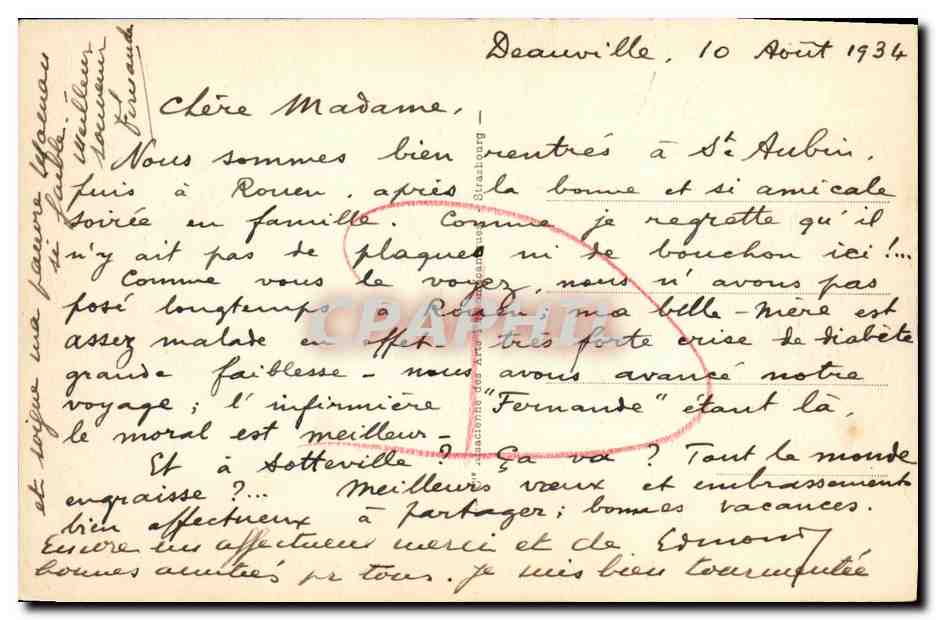 Deauville, 10 Août 1934
Chère Madame,
Nous sommes bien rentrés à St Aubin,
puis à Rouen, après la bonne et si amicale
soirée en famille. Comme je regrette qu'il
n'y ait pas de plaques ni de bouchon ici !...
Comme vous le voyez, nous n'avons pas
posé longtemps à Rouen ; ma belle-mère est
assez malade en effet - très forte crise de diabète
grande faiblesse - nous avons avancé notre
voyage ; l'infirmière "Fernande" étant là,
le moral est meilleur -
Et à Sotteville ? Ça va ? Tout le monde
engraisse ?... Meilleurs vœux et embrassements
bien affectueux à partager ; bonnes vacances.
Edmond
Encore un affectueux merci et de
bonnes amitiés pr tous. Je suis bien tourmentée
et soigne ma pauvre Maman
si faible.
Meilleur
souvenir
Fernande
Alsacienne des Arts Photomécaniques - Strasbourg
CPAPHIL